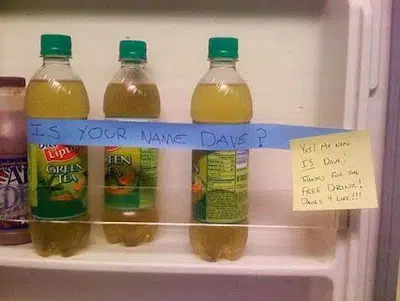 IS YOUR NAME DAVE?
YES! MY NAME
IS DAVE.
THANKS FOR THE
FREE DRINK!
DAVES 4 LIFE!!!
Lipton
GREEN
TEA
GREEN
TEA